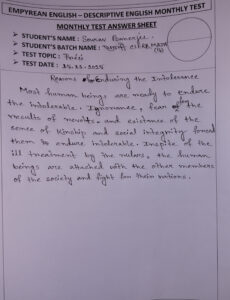 EMPYREAN ENGLISH – DESCRIPTIVE ENGLISH MONTHLY TEST
MONTHLY TEST ANSWER SHEET
➢ STUDENT'S NAME : Sourav Banerjee
➢ STUDENT'S BATCH NAME :
➢ TEST TOPIC : Précis
➢ TEST DATE :
Reasons of Enduring the Intolerance
Most human beings are ready to endure
the intolerable. Ignorance, fear of the
results of revolts and existance of the
sence of kinship and social integrity forced
them to endure intolerable. Inspite of the
ill treatment by the rulers, the human
beings are attached with the other members
of the society and fight for their nations.